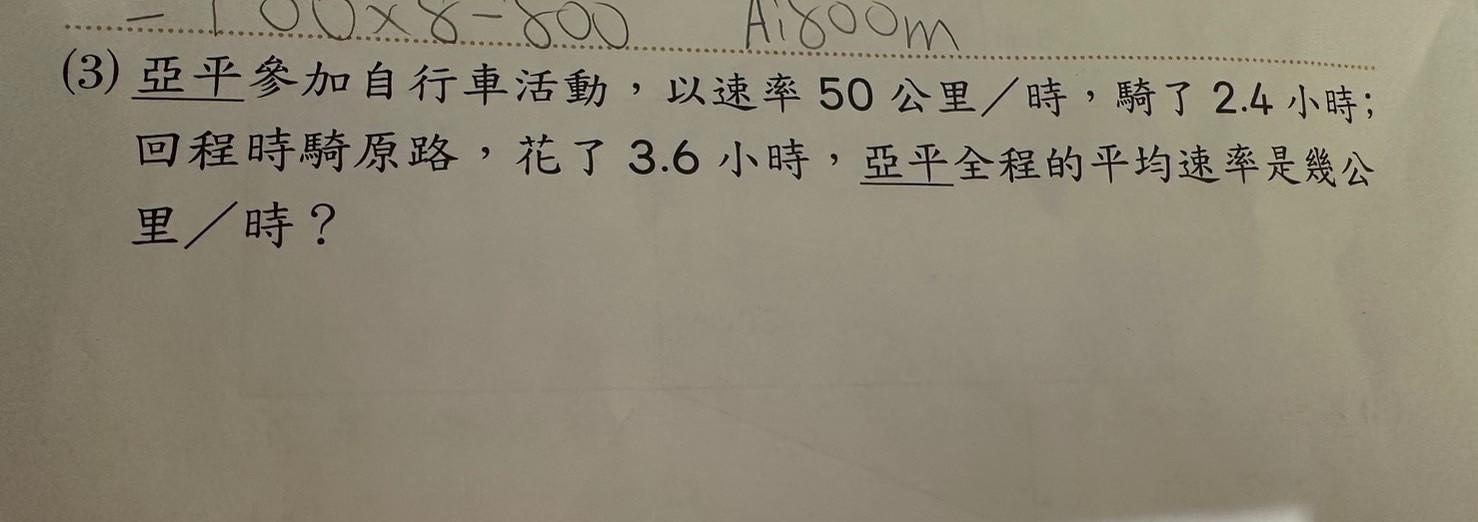 =100×8=800 A:800m
(3) 亞平參加自行車活動，以速率 50 公里／時，騎了 2.4 小時；
回程時騎原路，花了 3.6 小時，亞平全程的平均速率是幾公
里／時？